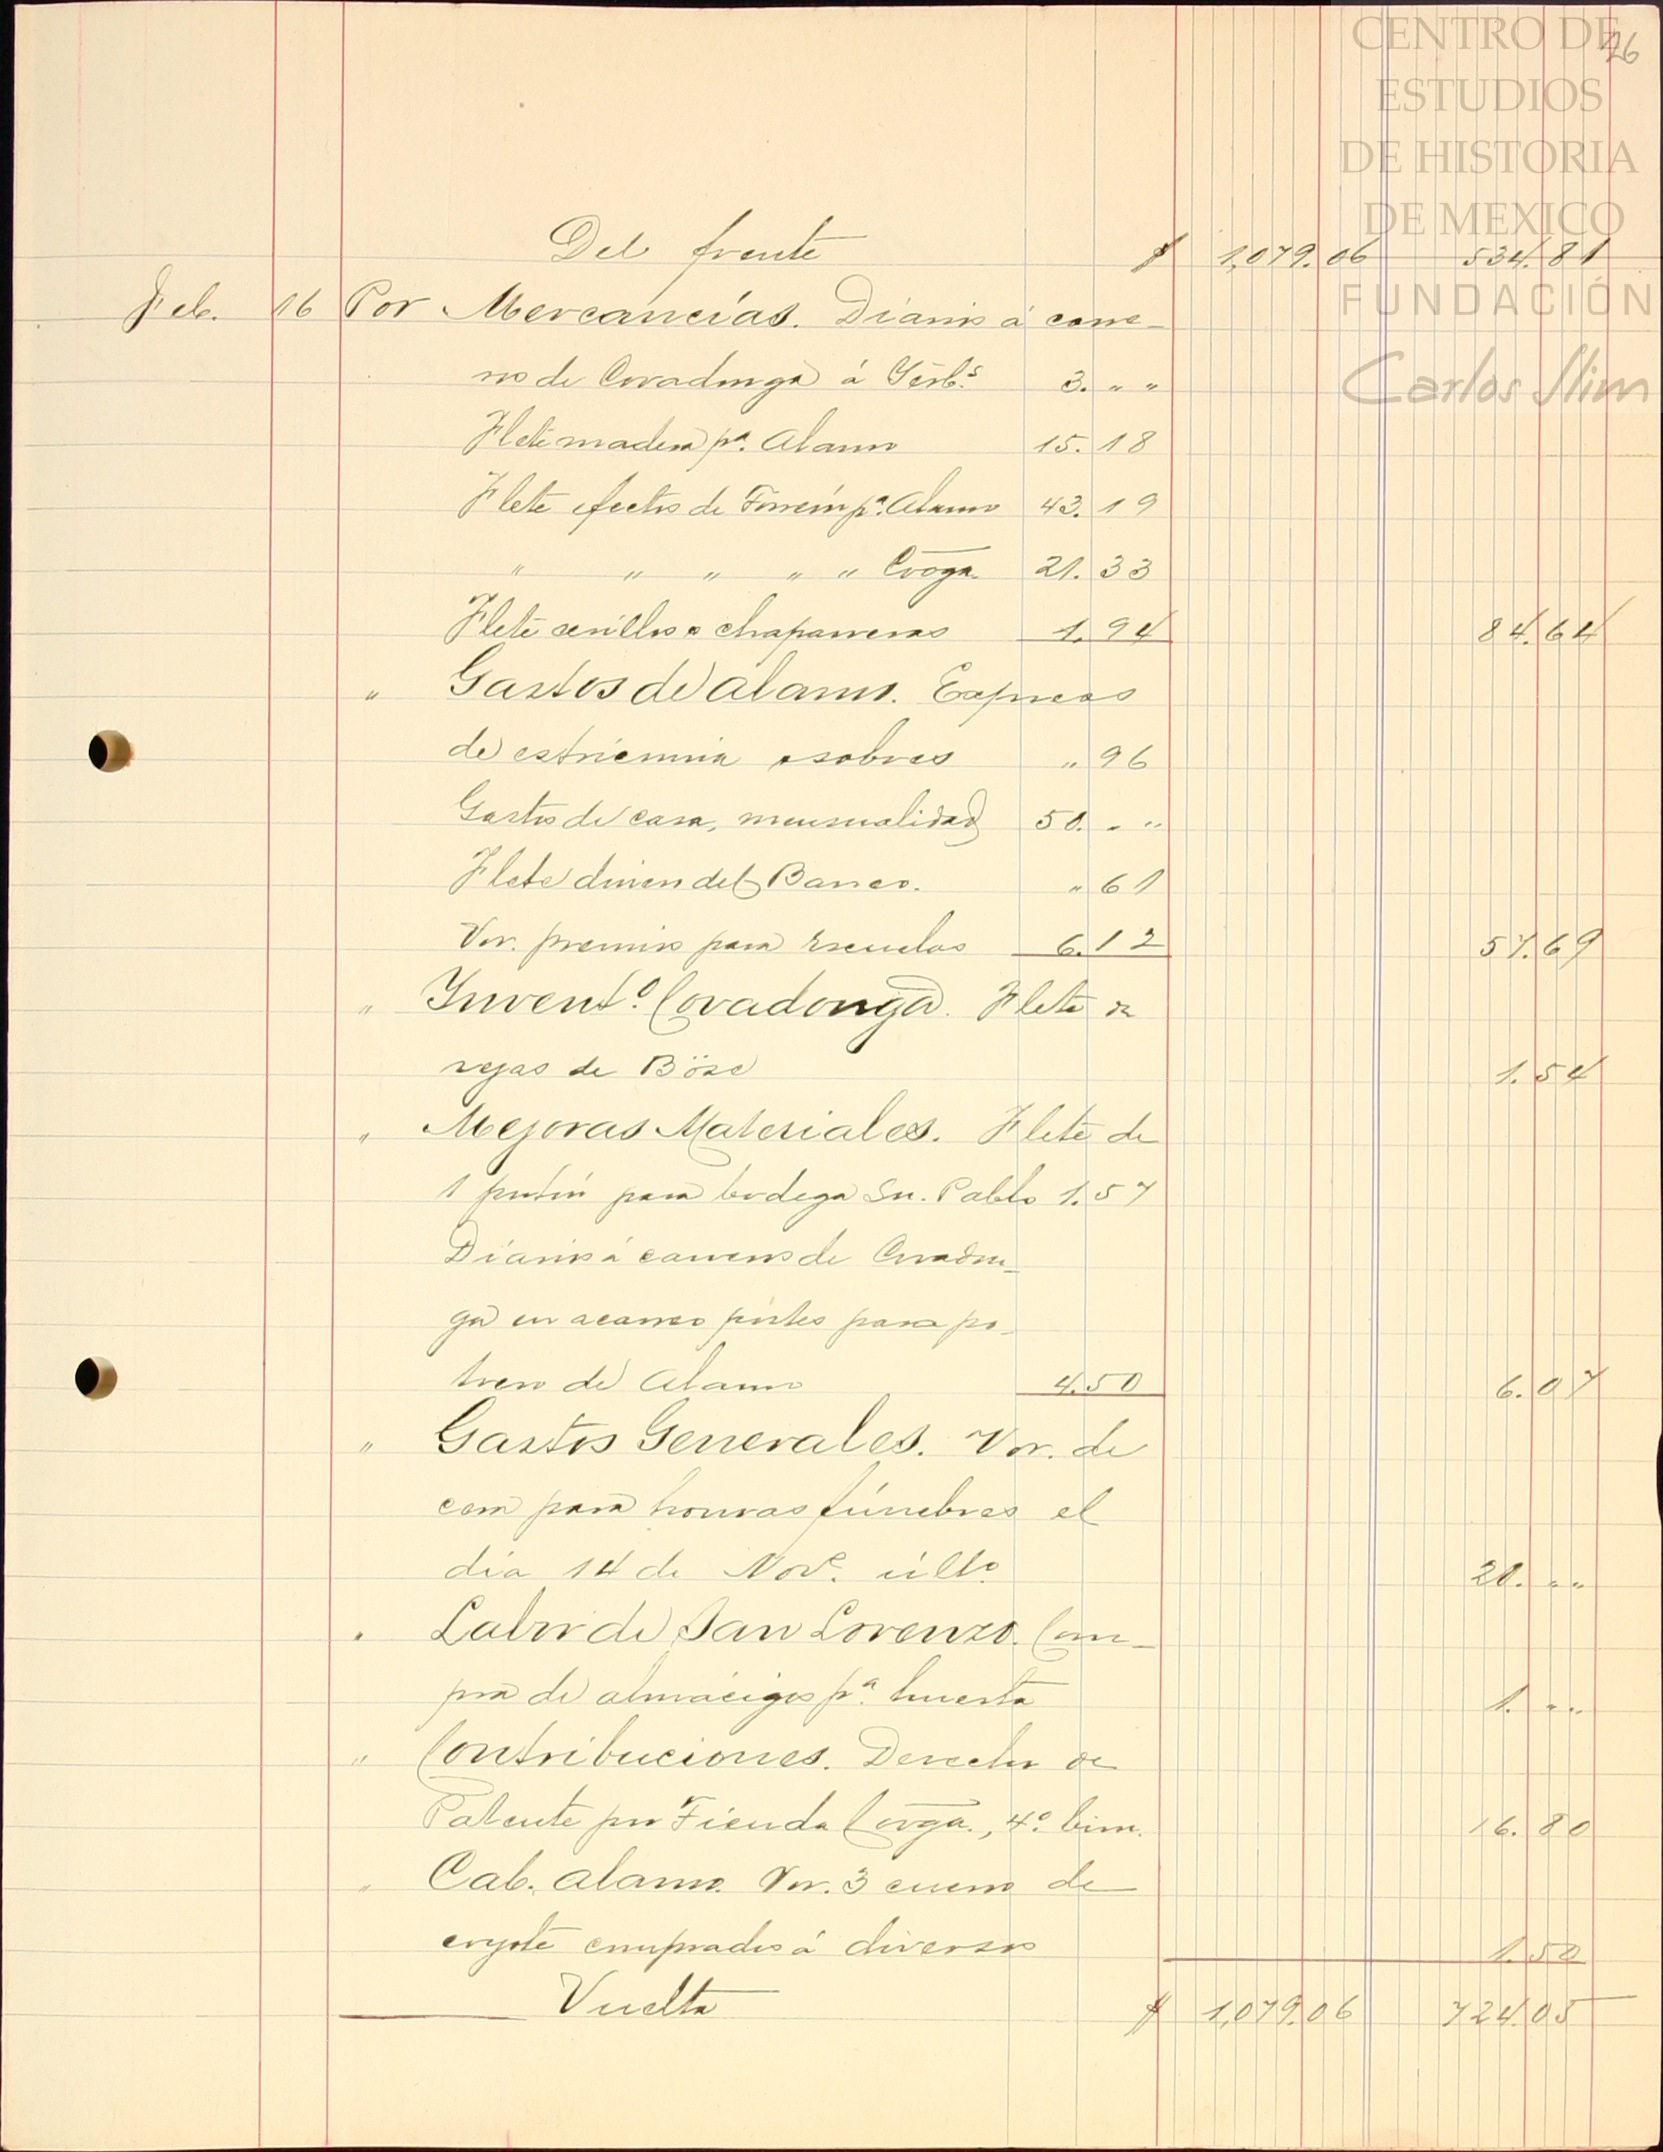 CENTRO DE
ESTUDIOS
DE HISTORIA
DE MEXICO
FUNDACIÓN
Carlos Slim
26
Del frente $ 1,079.06 534.81
Feb. 16 Por Mercancías. Diarios á carre-
ro de Covadonga á 3. " "
Flete madera pª. Alamo 15.18
Flete efectos de Torreón pª. Alamo 43.19
" " " " " Cvdga. 21.33
Flete cerillos o chaparreras 1.94 84.64
" Gastos de Alamo. Expreso
de estricnina o sobres " 96
Gastos de casa, mensualidad 50. " "
Flete dinero del Banco. " 61
Vor. premios para Escuelas 6.12 57.69
" Invent.º Covadonga. Flete de
rejas de Böse 1.54
" Mejoras Materiales. Flete de
1 portón para bodega Sn. Pablo 1.57
Diarios á carreros de Covadon-
ga en acarreo postes para po-
trero de Alamo 4.50 6.07
" Gastos Generales. Vor. de
cera para honras fúnebres el
día 14 de Novе. últº. 20. " "
" Labor de San Lorenzo. Com-
pra de almácigos pª. huerta 1. " "
" Contribuciones. Derecho de
Patente por Tienda Covga., 4º. bim. 16.80
" Cab. Alamo. Vor. 3 cueros de
coyote comprados á diversos 1.50
Vuelta $ 1,079.06 724.05